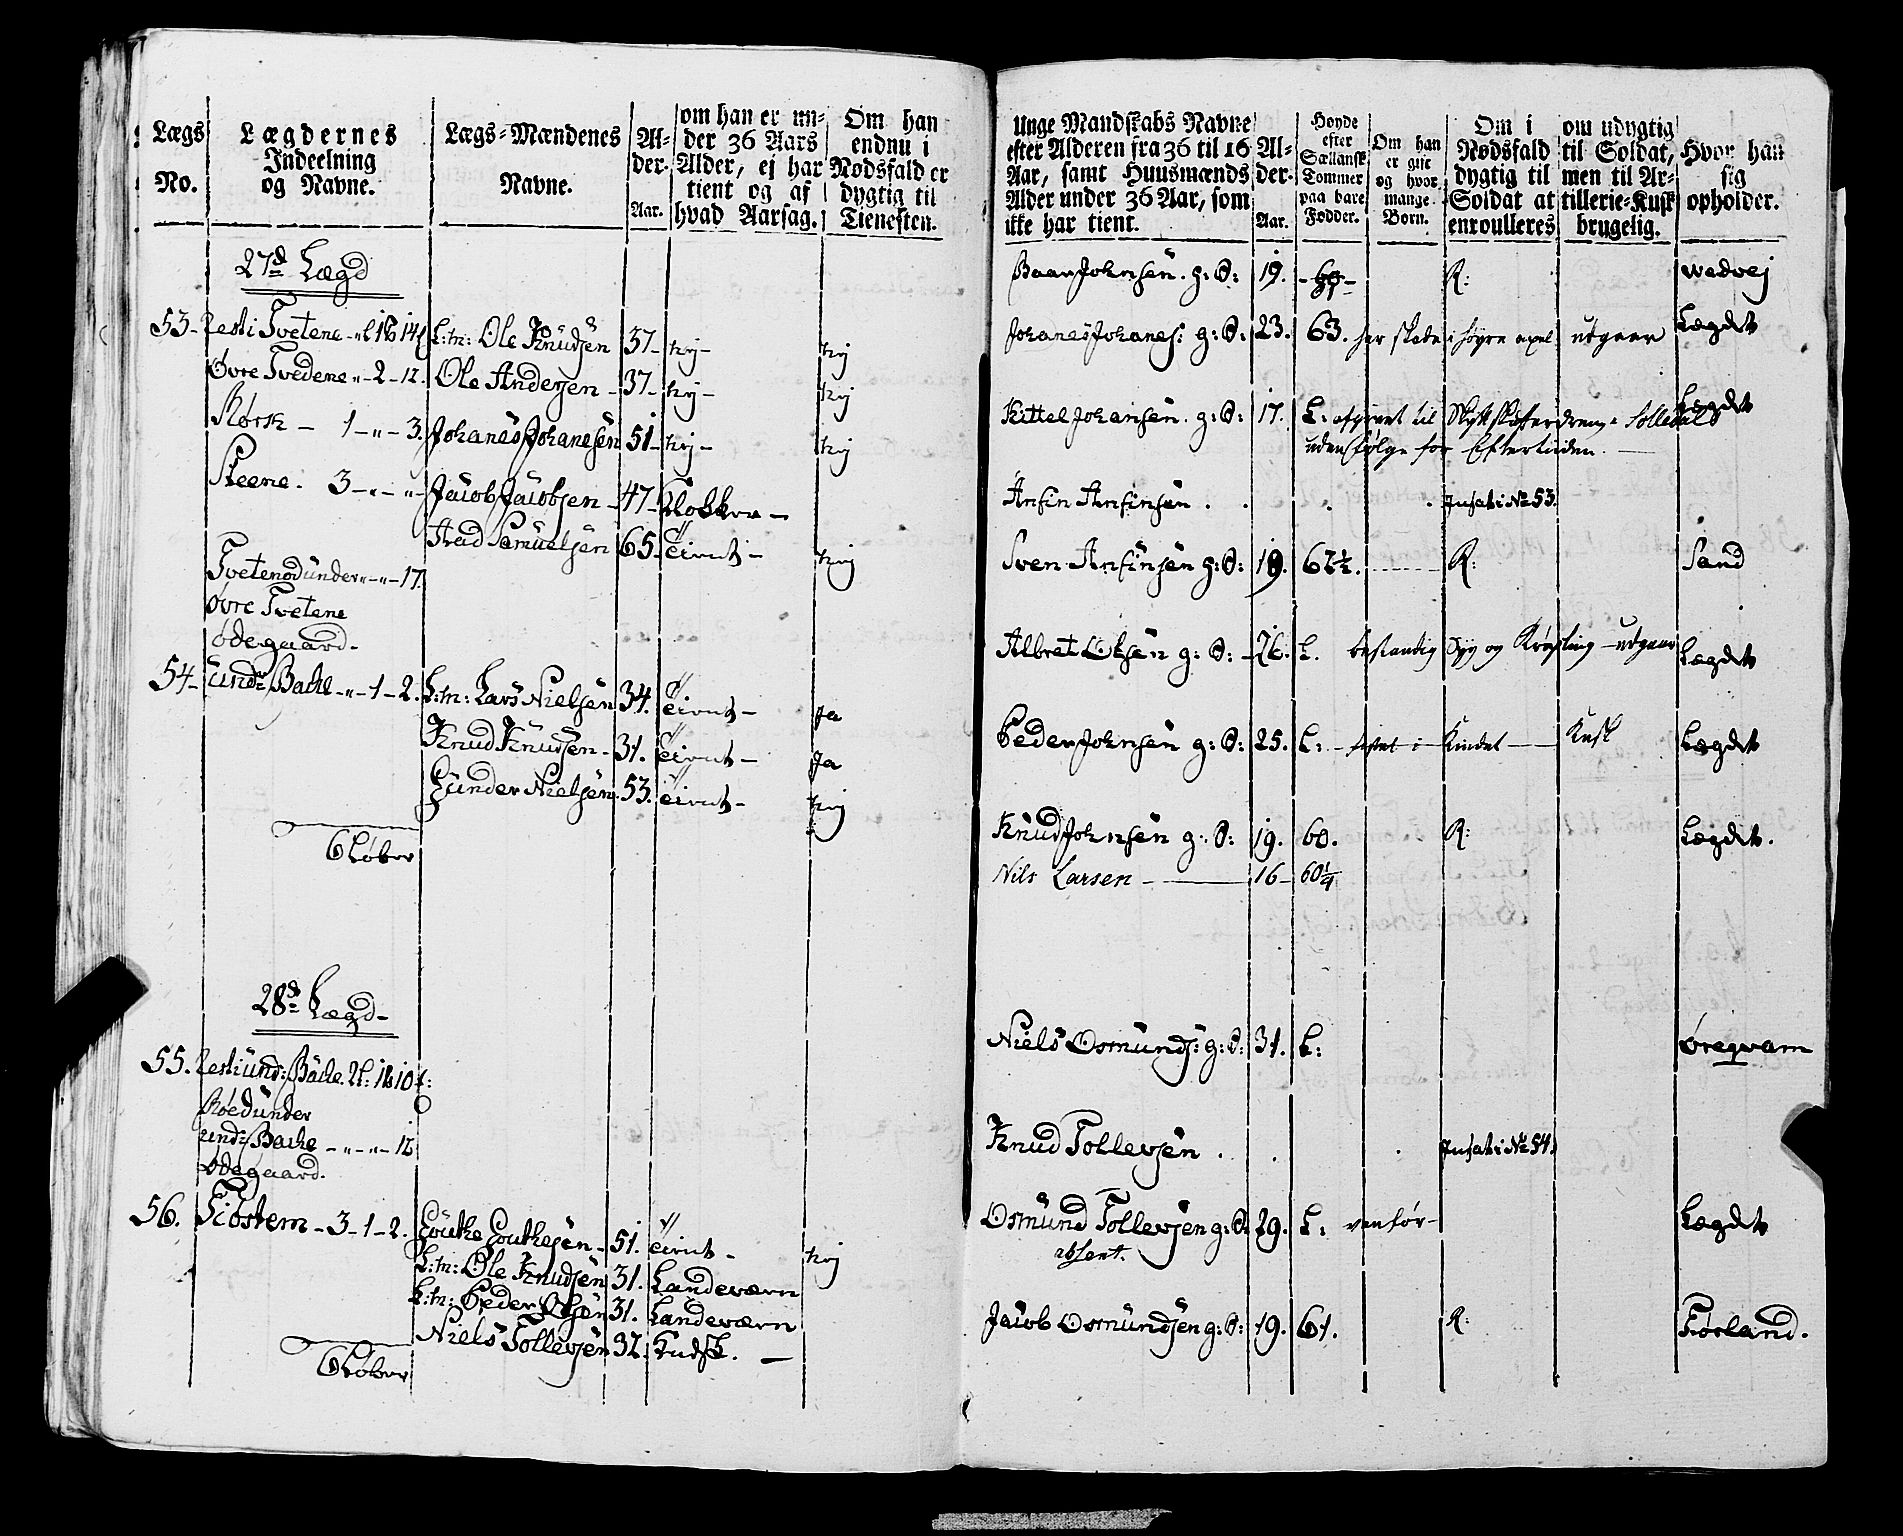 Lægs No.
Lægdernes Indeelning og Navne.
Lægs-Mændenes Navne.
Alder. Aar.
om han er under 36 Aars Alder, ej har tient og af hvad Aarsag.
Om han endnu i Nødsfald er dygtig til Tienesten.
27d Lægd
53. Rest i Tvetene
L:m: Ole Knudsen 37 nej nej
Øvre Tvedene 2 12. Ole Andersen 37 nej nej
Rørk 1 3. Johanes Johanesen 51 nej nej
Skeene 3 Jacob Jacobsen 47 Klokker
Aad Samuelsen 65. tient nej
Tvetenød under 17.
øvre Tvetene
ødegaard.
54. und: Bache 1 2. L:m: Lars Nielsen 34. tient Ja
Knud Knudsen 31. tient Ja
Gunder Nielsen 53. tient nej
6 Løber
28d Lægd
55. Rest i und: Bache
Røed under
und: Bache 12
ødegaard.
56. Fiøstem 3 1 2. Gouthe Gouthesen 51. tient nej
L:m: Ole Knudsen 31. Landeværn
L:m: Peder Olsen 31. Landeværn
Niels Tollevsen 32. Kudsk.
6 Løber
Unge Mandskabs Navne efter Alderen fra 36 til 16 Aar, samt Huusmænds Alder under 36 Aar, som ikke har tient.
Alder. Aar.
Høyde efter Sællansk Tommer paa bare Fødder.
Om han er gift og hvor mange Børn.
Om i Nødsfald dygtig til Soldat at enroulleres
om udygtig til Soldat, men til Artillerie-Kusk brugelig.
Hvor han sig opholder.
Baar Johnsen. g: S: 19. R: Wedvej
Johanes Johanes: g: S: 23. 63. har skade i høyre axel udgaar Lægdet
Kittel Johansen. g: S: 17. L: afgivet til Solledals Lægdet
uden følge for Eftertiden.
Anfin Anfinsen . . . . Insat i No 53.
Sven Anfinsen g: S: 19. 62½. R: Sand
Albret Olsen g: S: 26. L. bestandig Syg og udgaar Lægdet
Peder Johnsen g: S: 25. L: fistel i Kindet Kusk Lægdet
Knud Johnsen g: S: 19. 60. R: Lægdet.
Nils Larsen 16 60¼
Niels Osmunds: g: S: 31. L: Øreqvam
Knud Tollevsen . . . Insat i No 54.
Osmund Tollevsen g: S: 29. L: vanfør Lægdet
absent.
Jacob Osmundsen g: S: 19. 61. R: Førland.